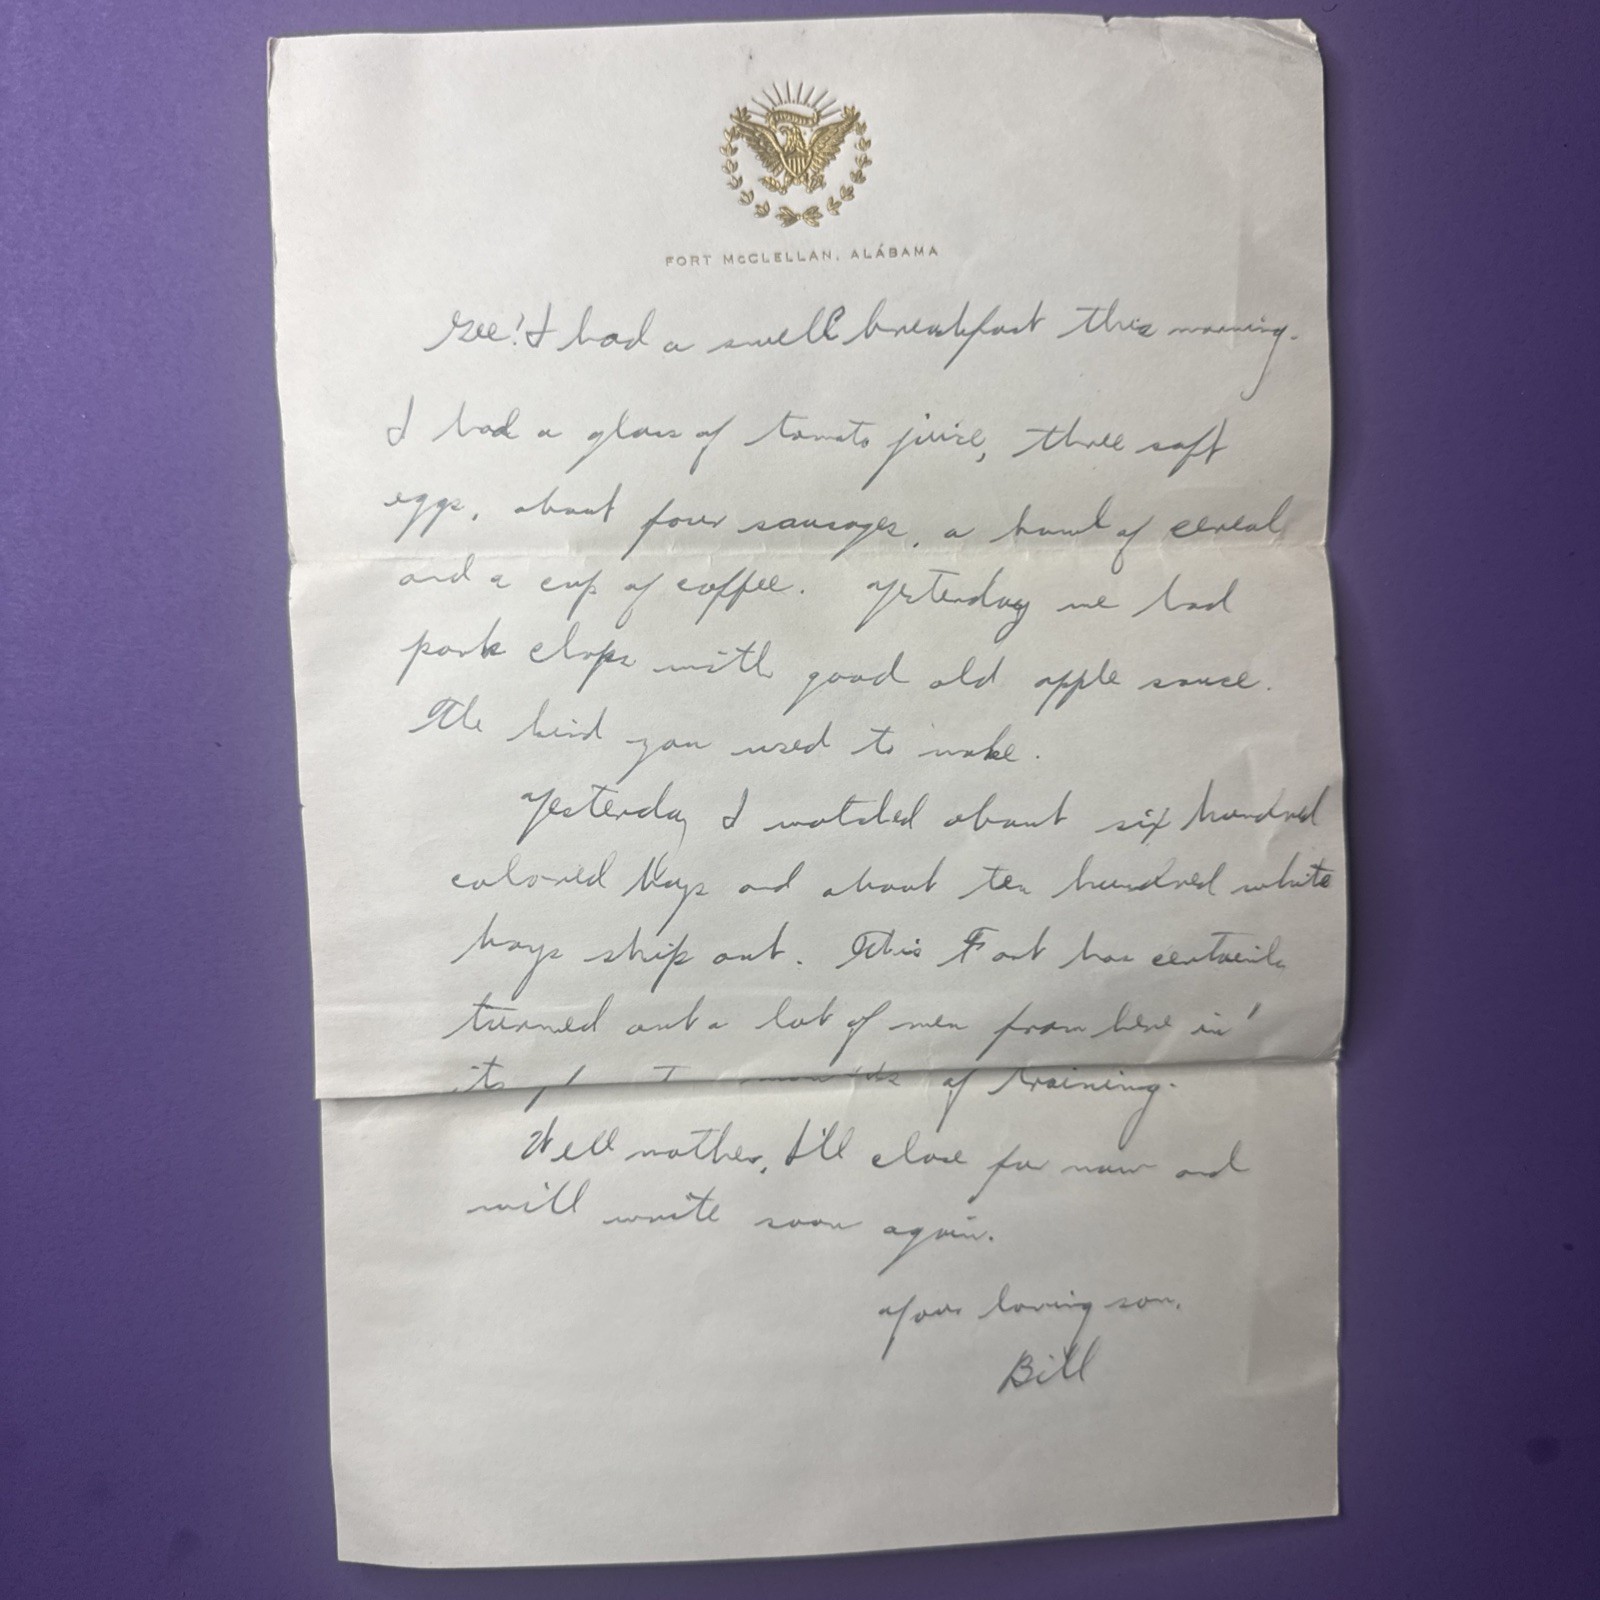 FORT McCLELLAN, ALABAMA
Gee! I had a swell breakfast this morning.
I had a glass of tomato juice, three soft
eggs, about four sausages, a bowl of cereal
and a cup of coffee. Yesterday we had
pork chops with good old apple sauce.
The kind you used to make.
Yesterday I watched about six hundred
colored boys and about ten hundred white
boys ship out. This Fort has certainly
turned out a lot of men from here in
its months of training.
Well mother, I'll close for now and
will write soon again.
Your loving son,
Bill